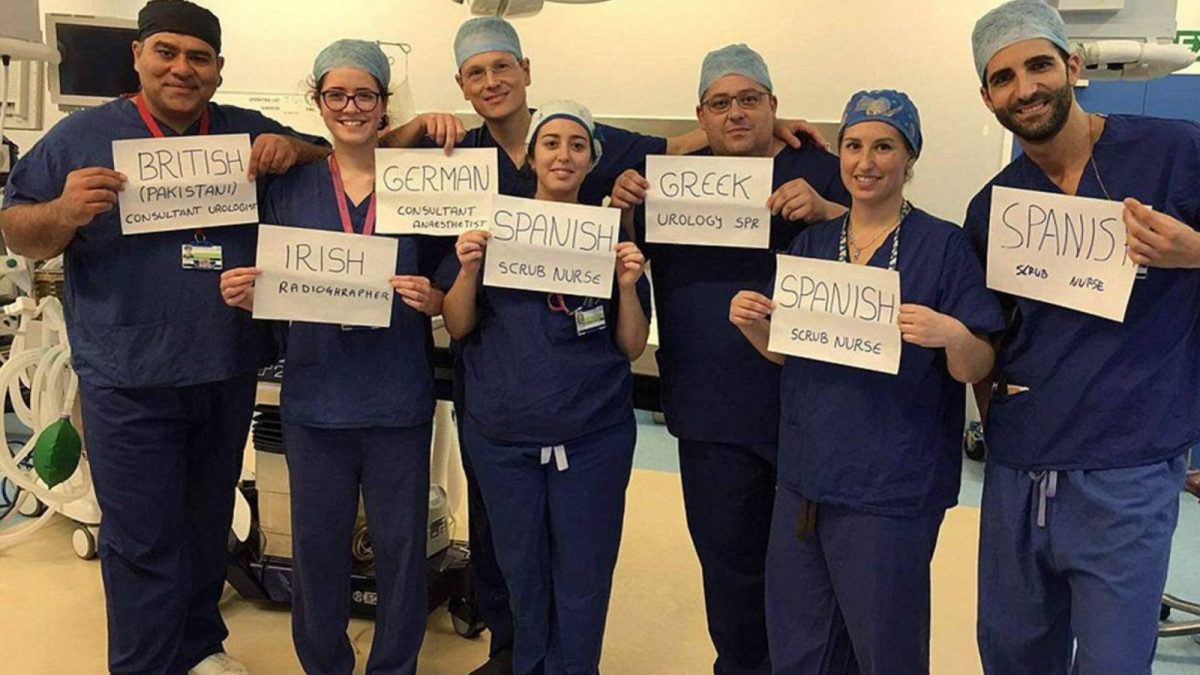 BRITISH
(PAKISTANI)
CONSULTANT UROLOGIST
IRISH
RADIOGHRAPHER
GERMAN
CONSULTANT
ANAESTHETIST
SPANISH
SCRUB NURSE
GREEK
UROLOGY SPR
SPANISH
SCRUB NURSE
SPANISH
SCRUB NURSE